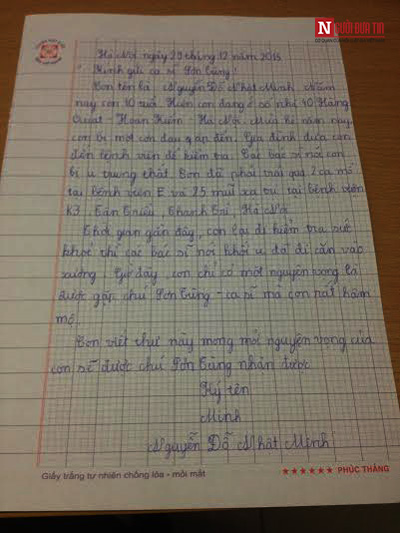 NGƯỜI ĐƯA TIN
Hà Nội ngày 29 tháng 12 năm 2015
Kính gửi ca sĩ Sơn Tùng!
Con tên là Nguyễn Đỗ Nhật Minh. Năm
nay con 10 tuổi. Hiện con đang ở số nhà 40 Hàng
Quạt - Hoàn Kiếm - Hà Nội. Mùa hè năm nay
con bị một cơn đau gập đến. Gia đình đưa con
đến bệnh viện để kiểm tra. Các bác sĩ nói con
bị u trung thất. Con đã phải trải qua 2 ca mổ
tại bệnh viện E và 25 mũi xạ trị tại bệnh viện
K3 Tân Triều, Thanh Trì, Hà Nội.
Thời gian gần đây, con lại đi kiểm tra sức
khoẻ thì các bác sĩ nói khối u đã di căn vào
xương. Giờ đây con chỉ có một nguyện vọng là
được gặp chú Sơn Tùng - ca sĩ mà con rất hâm
mộ.
Con viết thư này mong mỏi nguyện vọng của
con sẽ được chú Sơn Tùng nhận được
Ký tên
Minh
Nguyễn Đỗ Nhật Minh
Giấy trắng tự nhiên chống lóa - mỏi mắt
PHÚC THÀNG